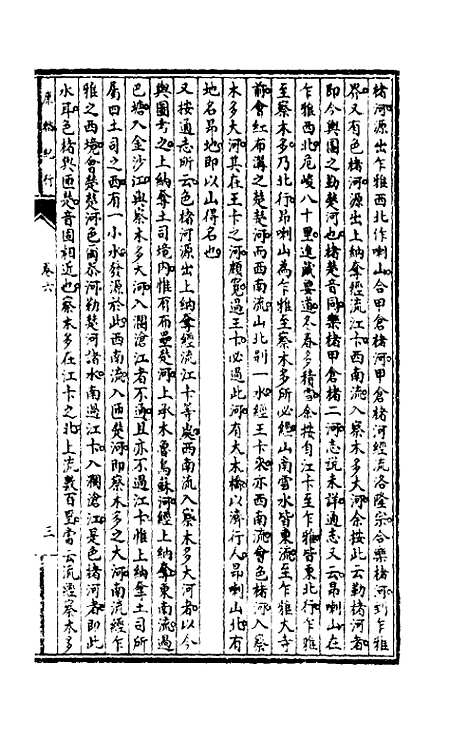 楮河源出乍雅西北作喇山合甲倉楮河甲倉楮河經流洛隆宗合樂楮河到乍雅
界又有色楮河源出上納奪經流江卡西南流入察木多大河余按此云勒楮河者
即今輿圖之勒楚河也楮楚音同樂楮甲倉楮二河志說未詳通志又云昂喇山在
乍雅西北危峻八十里進藏要道冬春多積雪余按自江卡至乍雅皆東北行乍雅
至察木多乃北行昂喇山為乍雅至察木多所必經山南雪水皆東流至乍雅大寺
前會紅布溝之楚楚河而西南流山北別一水經王卡來亦西南流會色楮河入察
木多大河其在王卡之河頗寬過王卡必過此河有大木橋以濟行人昂喇山北有
地名昂地即以山得名也
又按通志所云色楮河源出上納奪經流江卡等處西南流入察木多大河者以今
輿圖考之上納奪土司境內惟有布壘楚河上承木魯烏蘇河經上納奪東南流過
巴塘入金沙江與察木多大河入瀾滄江者不通且亦不過江卡惟上納奪土司所
屬四土司之西有一小水發源於此西南流入匝楚河即察木多之大河南流經乍
雅之西境會楚楚河色爾恭河勒楚河諸水南過江卡入瀾滄江是色楮河者即此
水耳色楮與匝楚音固相近也察木多在江卡之北上流數百里當云流經察木多
康輶紀行
卷六
三